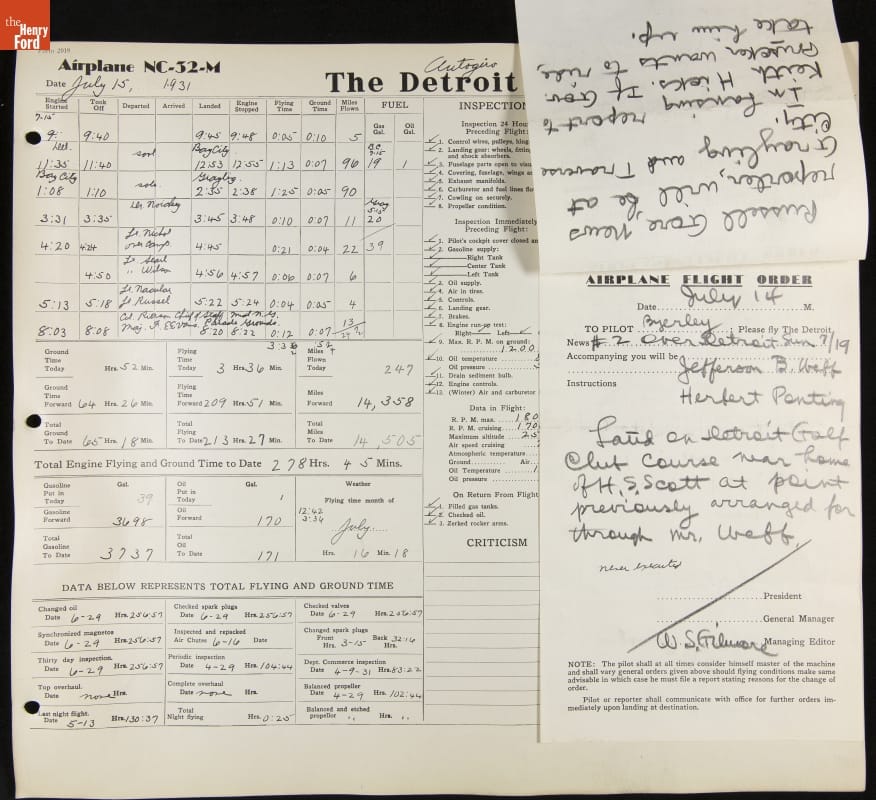 the
Henry
Ford
Form 2019
Airplane NC-32-M
Autogiro
Date July 15, 1931
The Detroit
Engine Started Took Off Departed Arrived Landed Engine Stopped Flying Time Ground Time Miles Flown FUEL
Gas Gal. Oil Gal.
7-15
9: 9:40 9:45 9:48 0:05 0:10 5
Det. Bay City B.C. 7-15
11:35 11:40 solo 12:53 12:55 1:13 0:07 96 19 1
Bay City Grayling
1:08 1:10 solo 2:35 2:38 1:25 0:05 90
3:31 3:35 3:45 3:48 0:10 0:07 11 20
Lt. Nichol
4:20 4:24 over Camp 4:45 0:21 0:04 22 39
Lt. Searl
4:50 " Wilson 4:56 4:57 0:06 0:07 6
5:13 5:18 Lt Russel 5:22 5:24 0:04 0:05 4
8:03 8:08 8:20 8:22 0:12 0:07 13
3:36 :52
Ground Time Today Hrs. 52 Min.
Flying Time Today 3 Hrs. 36 Min.
Miles Flown Today 247
Ground Time Forward 64 Hrs. 26 Min.
Flying Time Forward 209 Hrs. 51 Min.
Miles Forward 14,358
Total Ground To Date 65 Hrs. 18 Min.
Total Flying To Date 213 Hrs. 27 Min.
Total Miles To Date 14,505
Total Engine Flying and Ground Time to Date 278 Hrs. 45 Mins.
Gasoline Put in Today Gal. 39
Oil Put in Today Gal. 1
Weather
Flying time month of
12:42
3:36
July
Gasoline Forward 3698
Oil Forward 170
Total Gasoline To Date 3737
Total Oil To Date 171
Hrs. 16 Min. 18
DATA BELOW REPRESENTS TOTAL FLYING AND GROUND TIME
Changed oil Date 6-29 Hrs. 256:57
Checked spark plugs Date 6-29 Hrs. 256:57
Checked valves Date 6-29 Hrs. 256:57
Synchronized magnetos Date 6-29 Hrs. 256:57
Inspected and repacked Air Chutes 6-16 Date
Changed spark plugs Front Hrs. 3-15 Back Hrs. 32:16
Thirty day inspection. Date 6-29 Hrs. 256:57
Periodic inspection Date 4-29 Hrs. 104:44
Dept. Commerce inspection Date 4-9-31 Hrs. 83:22
Top overhaul. Date none Hrs.
Complete overhaul Date none Hrs.
Balanced propeller Date 4-29 Hrs. 102:44
Last night flight. Date 5-13 Hrs. 130:37
Total Night flying Hrs. 0:25
Balanced and etched propeller " Hrs. "
INSPECTION
Inspection 24 Hour
Preceding Flight:
1. Control wires, pulleys, hing
2. Landing gear: wheels, fitting
and shock absorbers.
3. Fuselage parts open to vis
4. Covering, fuselage, wings a
5. Exhaust manifolds.
6. Carburetor and fuel lines fo
7. Cowling on securely.
8. Propeller condition.
Inspection Immediately
Preceding Flight:
1. Pilot's cockpit cover closed an
2. Gasoline supply:
Right Tank
Center Tank
Left Tank
3. Oil supply.
4. Air in tires.
5. Controls.
6. Landing gear.
7. Brakes.
8. Engine run-up test:
Right Left
9. Max. R.P.M. on ground
1200
10. Oil temperature
Oil pressure
11. Drain sediment bulb.
12. Engine controls.
13. (Winter) Air and carburetor
Data in Flight:
R. P. M. max. 180
R. P. M. cruising 170
Maximum altitude 25
Air speed cruising
Atmospheric temperature
Ground Air
Oil Temperature
Oil pressure
On Return From Flight
1. Filled gas tanks.
2. Checked oil.
3. Zerked rocker arms.
CRITICISM
Russell Gore, News
reporter, will be at
Grayling and Traverse
City.
In Lansing report to
Keith Hicks. If Gov.
Brucker wants to ride,
take him up.
AIRPLANE FLIGHT ORDER
Date July 14 M.
TO PILOT Byerley : Please fly The Detroit
News #2 over Detroit Sun 7/19
Accompanying you will be Jefferson B. Webb
Instructions Herbert Ponting
Land on Detroit Golf
Club Course near home
of H. S. Scott at point
previously arranged for
through Mr. Webb.
never executed
President
General Manager
W. S. Gilmore Managing Editor
NOTE: The pilot shall at all times consider himself master of the machine
and shall vary general orders given above should flying conditions make same
advisable in which case he must file a report stating reasons for the change of
order.
Pilot or reporter shall communicate with office for further orders im-
mediately upon landing at destination.